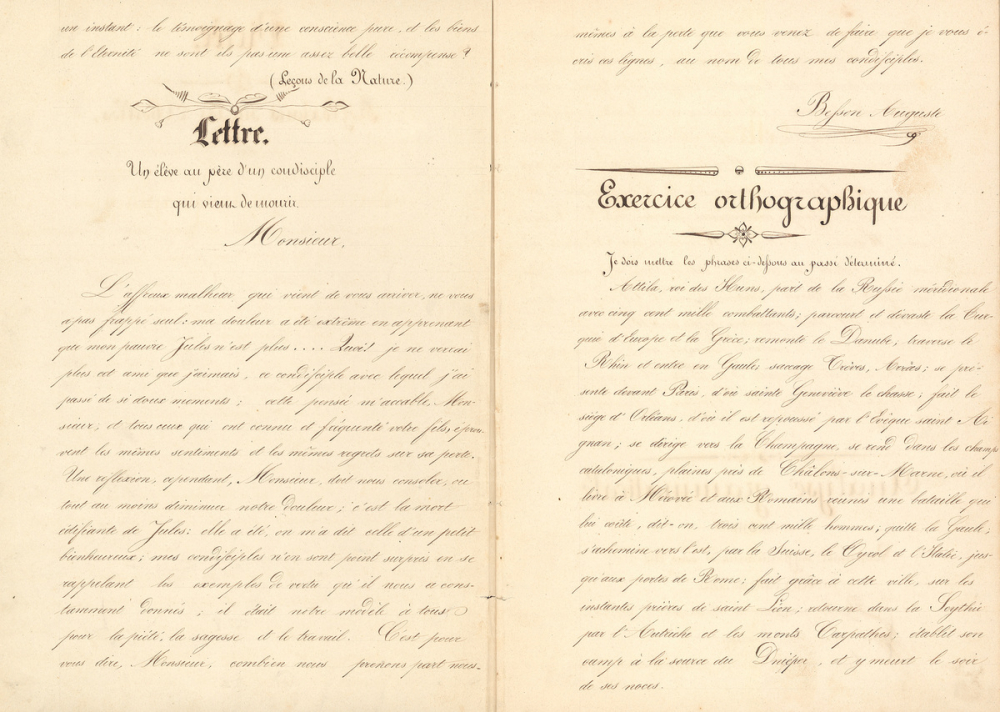 un instant : le témoignage d'une conscience pure, et les biens
de l'Eternité ne sont ils pas une assez belle récompense ?
(Leçons de la Nature.)
Lettre.
Un élève au père d'un condisciple
qui vient de mourir
Monsieur,
L'affreux malheur qui vient de vous arriver, ne vous
a pas frappé seul : ma douleur a été extrême en apprenant
que mon pauvre Jules n'est plus.... Quoi! je ne verrai
plus cet ami que j'aimais, ce condisciple avec lequel j'ai
passé de si doux moments ; cette pensée m'accable, Mon-
sieur, et tous ceux qui ont connu et fréquenté votre fils, éprou-
vent les mêmes sentiments et les mêmes regrets sur sa perte.
Une réflexion, cependant, Monsieur, doit nous consoler, ou
tout au moins diminuer notre douleur ; c'est la mort
édifiante de Jules : elle a été, on m'a dit celle d'un petit
bienheureux ; mes condisciples n'en sont point surpris en se
rappelant les exemples de vertu qu'il nous a cons-
tamment donnés ; il était notre modèle à tous
pour la piété, la sagesse et le travail. C'est pour
vous dire, Monsieur, combien nous prenons part nous-
mêmes à la perte que vous venez de faire que je vous é-
cris ces lignes, au nom de tous mes condisciples.
Besson Auguste
Exercice orthographique
Je dois mettre les phrases ci-dessous au passé déterminé.
Attila, roi des Huns, part de la Russie méridionale
avec cinq cent mille combattants ; parcourt et dévaste la Tur-
quie d'Europe et la Grèce ; remonte le Danube, traverse le
Rhin et entre en Gaule, saccage Trèves, Arras ; se pré-
sente devant Paris, d'où sainte Geneviève le chasse ; fait le
siège d'Orléans, d'où il est repoussé par l'Evêque saint Ai-
gnan ; se dirige vers la Champagne, se rend dans les champs
catalauniques, plaines près de Châlons-sur-Marne, où il
livre à Mérovée et aux Romains réunis une bataille qui
lui coûte, dit-on, trois cent mille hommes ; quitte la Gaule ;
s'achemine vers l'est, par la Suisse, le Tyrol et l'Italie, jus-
qu'aux portes de Rome ; fait grâce à cette ville, sur les
instantes prières de saint Léon ; retourne dans la Scythie
par l'Autriche et les monts Carpathes ; établit son
camp à la source du Dniéper, et y meurt le soir
de ses noces.